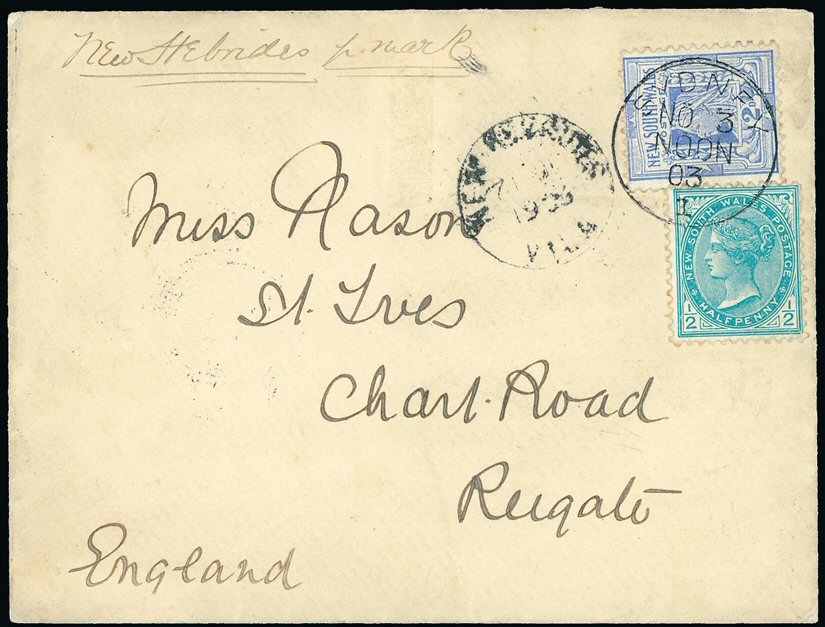 New Hebrides p. mark
NEW SOUTH WALES
2D
SYDNEY
NO 3
NOON
03
1
NEW HEBRIDES
1903
VILA
NEW SOUTH WALES POSTAGE
HALFPENNY
1/2 1/2
Miss Nason
St. Ives
Chart Road
Reigate
England